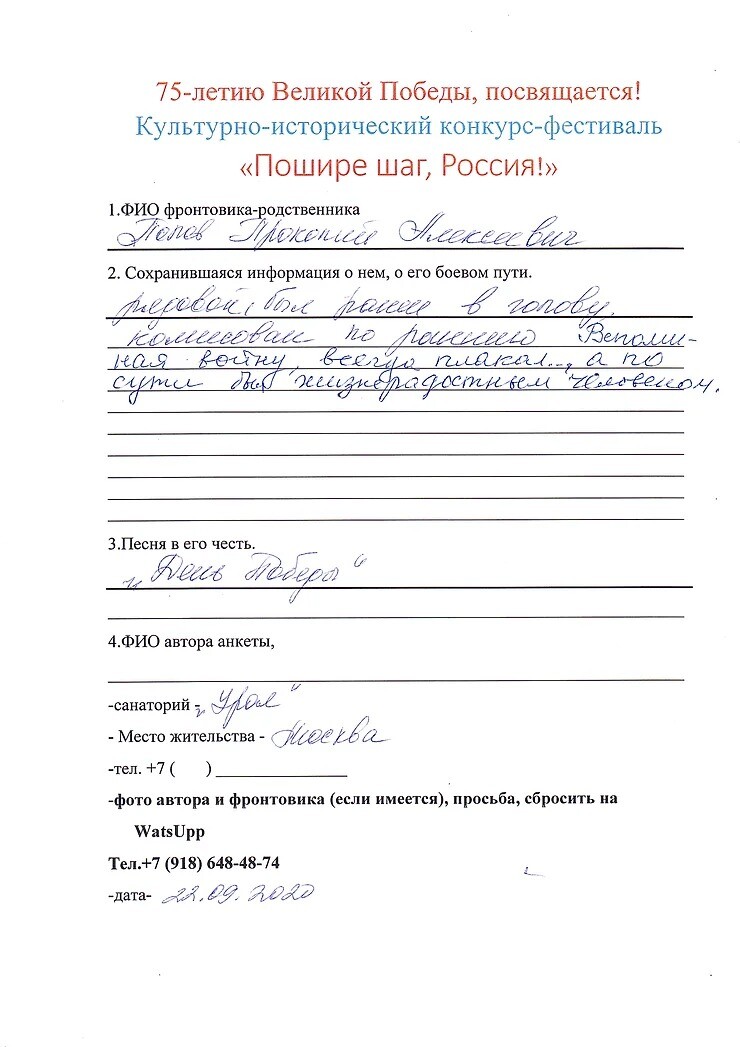 75-летию Великой Победы, посвящается!
Культурно-исторический конкурс-фестиваль
«Пошире шаг, Россия!»
1.ФИО фронтовика-родственника
Попов Прокопий Алексеевич
2. Сохранившаяся информация о нем, о его боевом пути.
рядовой, был ранен в голову,
комисован по ранению Вспоми-
ная войну, всегда плакал..., а по
сути был жизнерадостным человеком.
3.Песня в его честь.
„День Победы“
4.ФИО автора анкеты,
-санаторий - „Урал“
- Место жительства - Москва
-тел. +7 ( ) ________________
-фото автора и фронтовика (если имеется), просьба, сбросить на
WatsUpp
Тел.+7 (918) 648-48-74
-дата- 22.09.2020